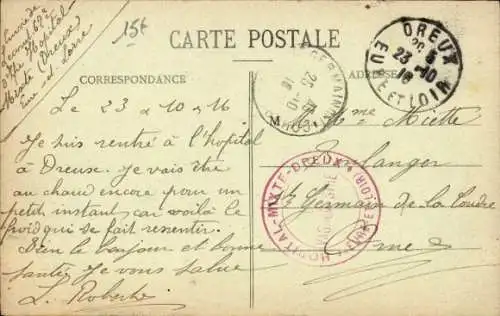 15€
CARTE POSTALE
CORRESPONDANCE
ADRESSE
Hôpital
Mixte Dreux
Eure-et-Loire
DREUX
23-10
16
EURE ET LOIR
GERMAIN
25
-10
16
Le 23 a 10 a 16
Je suis rentré à l'hopital
à Dreuse. Je vais être
au chaud encore pour un
petit instant car voilà le
froid qui de fait ressentir.
Bien le bonjour et bonne
santée Je vous salue
L. Roberte
M me Miette
Boulanger
St Germain de la Coudre
Orne
HOPITAL-MIXTE-DREUX